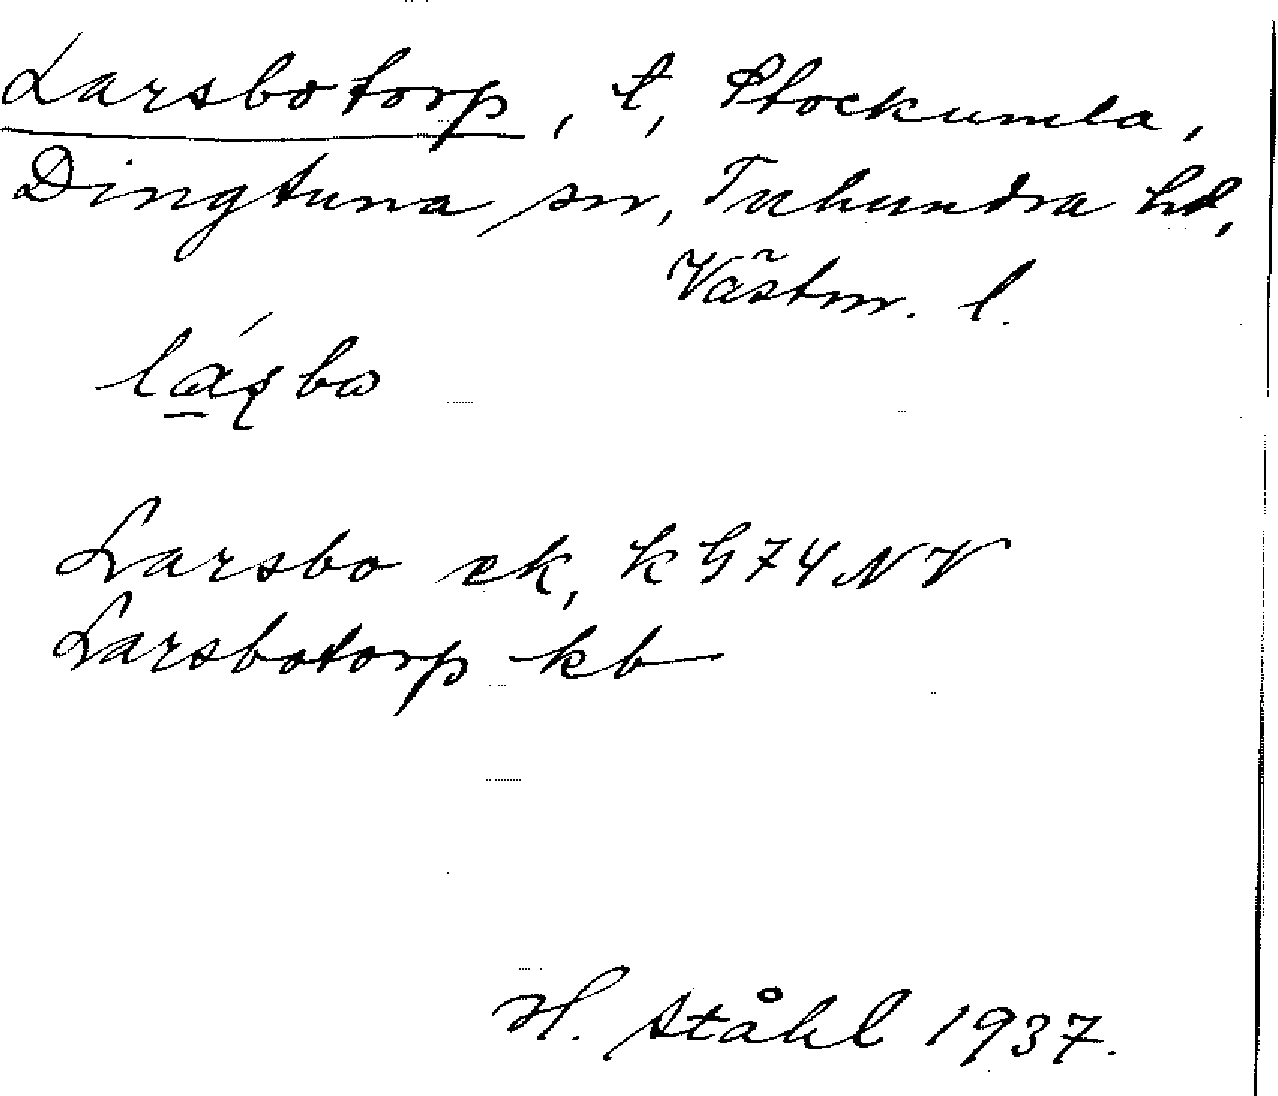 Larsbotorp, t, Stockumla,
Dingtuna sn, Tuhundra hd,
Västm. l.
lása̱ʂbo
Larsbo ek, k G 74 NV
Larsbotorp kb
H. Ståhl 1937.